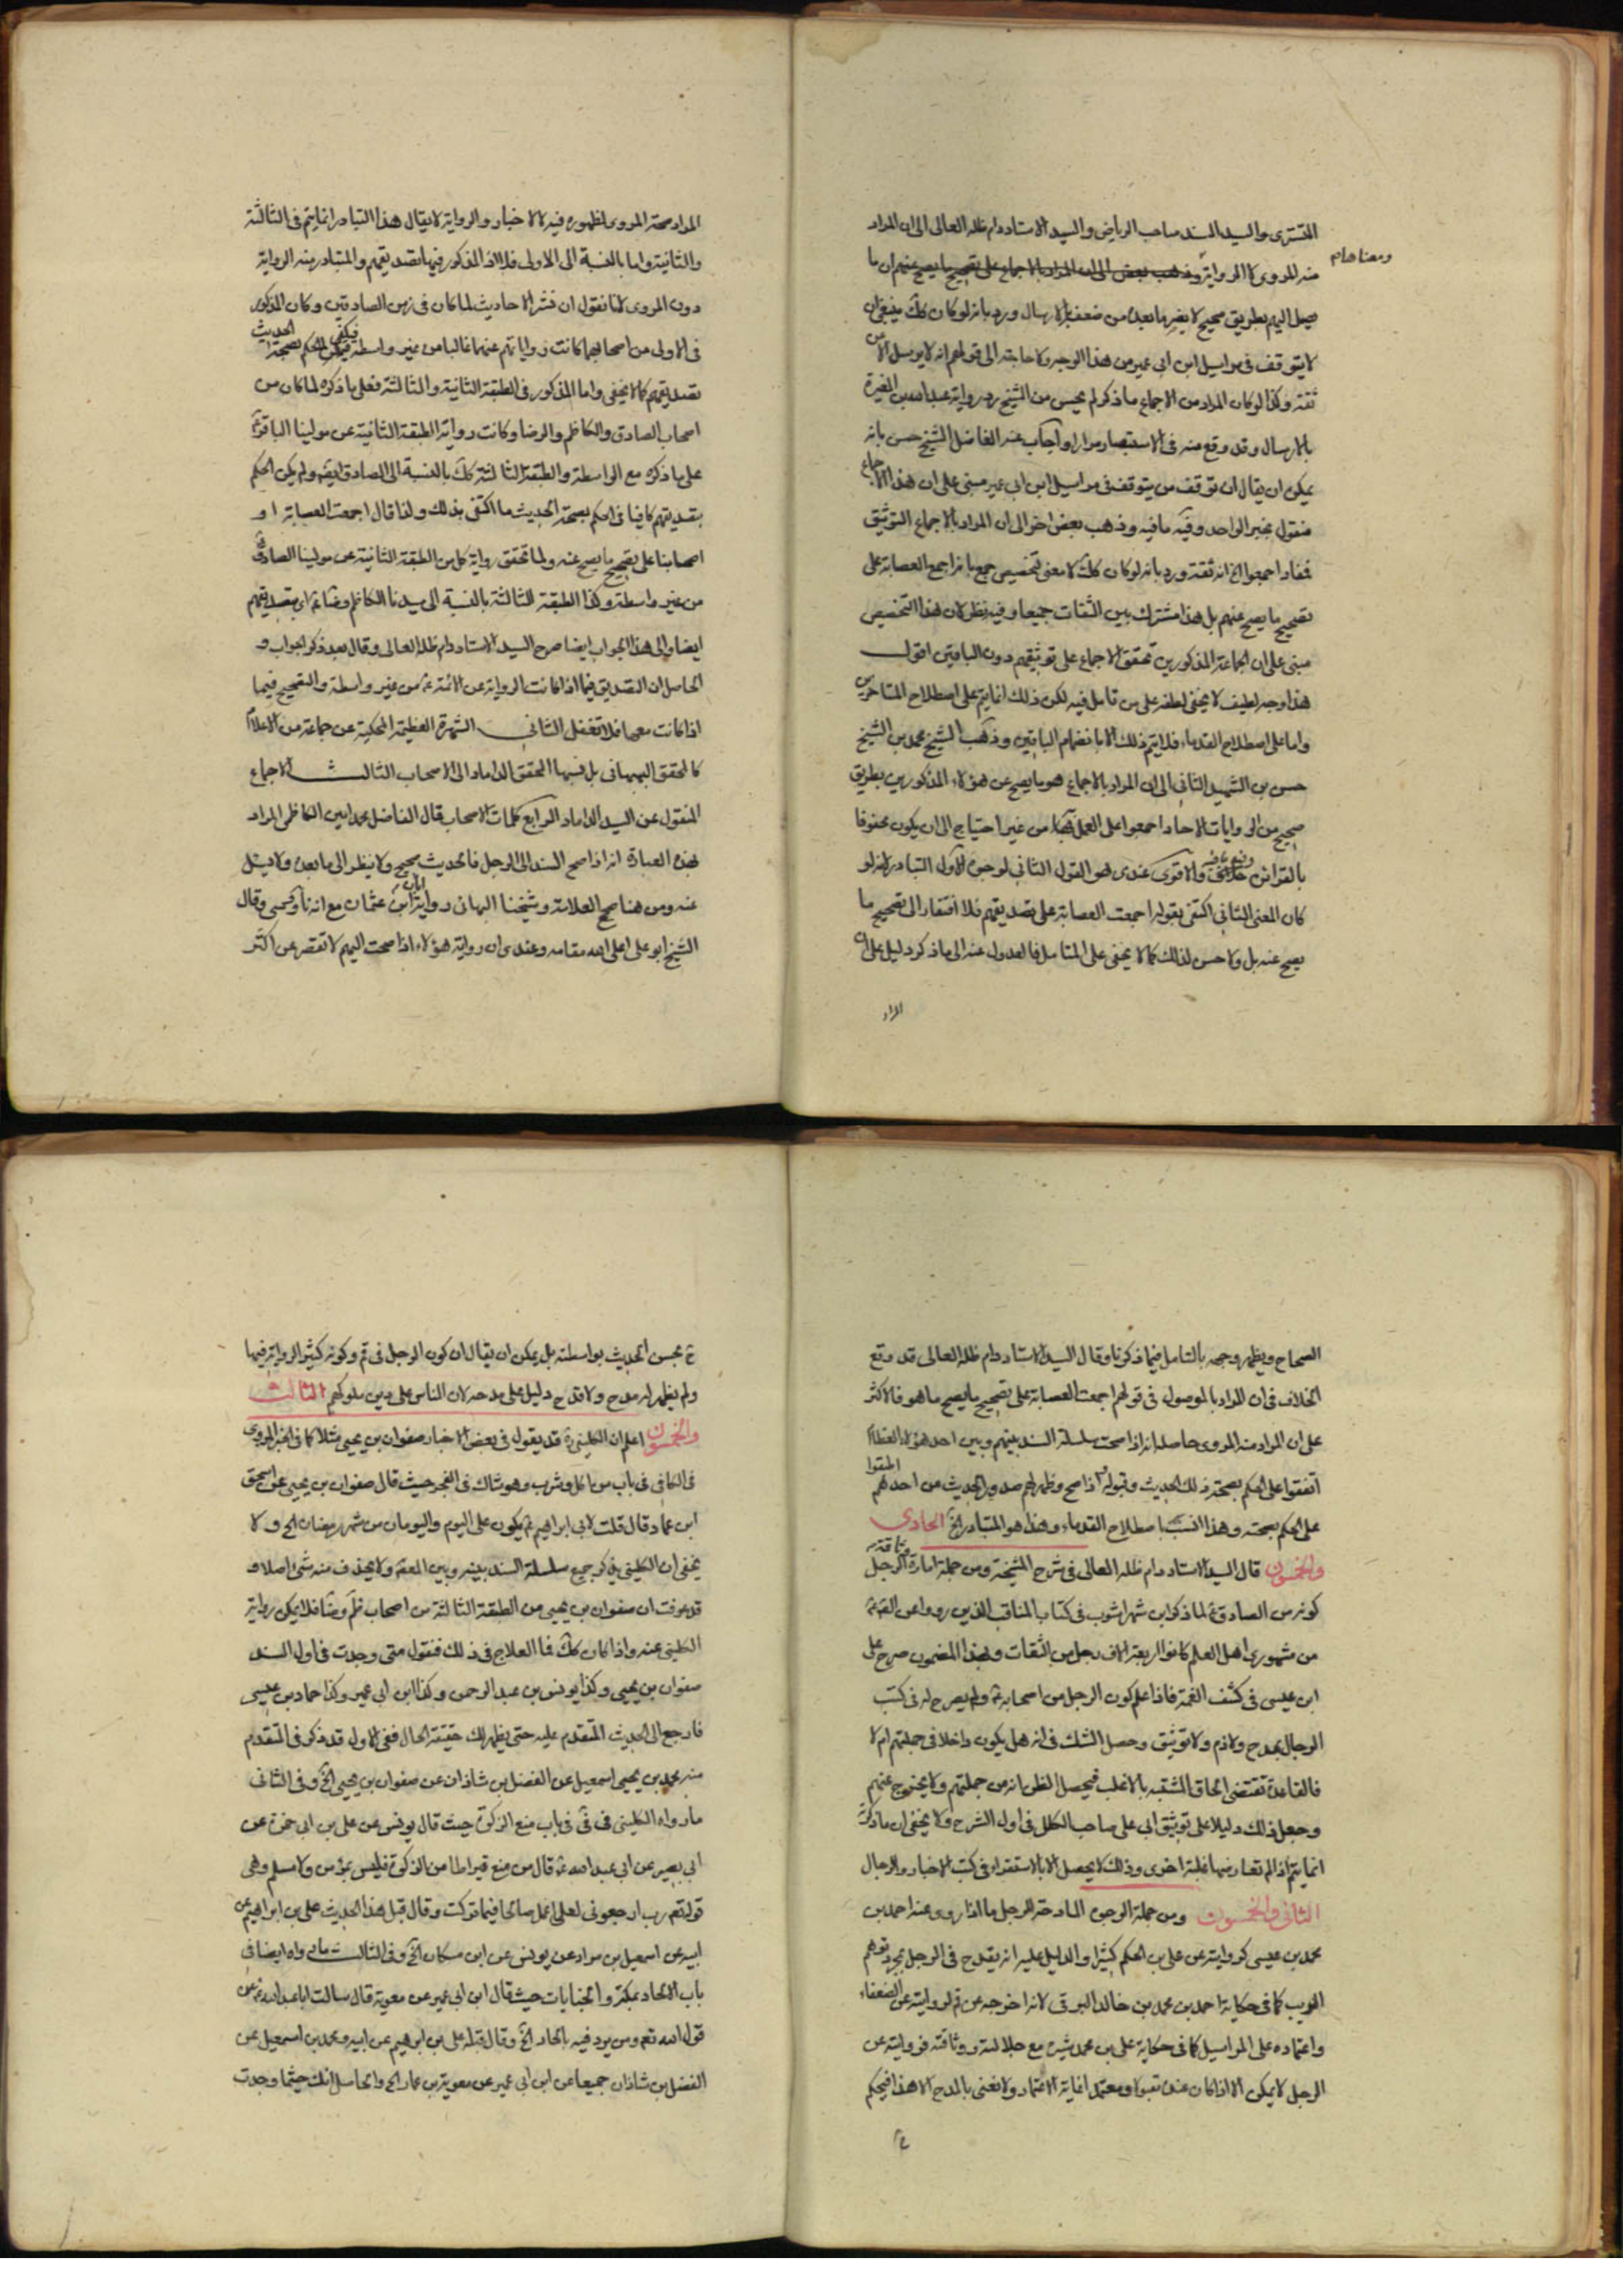 التستری والسید السند صاحب الریاض والسید الاستاد دام ظله العالی الی ان المراد
ومعناهام
منه المروی لا الروایة وذهب بعض الی ان المراد بالاجماع علی تصحیح ما یصح عنهم ان ما
یصل الیهم بطریق صحیح لا یضر ما بعده من ضعف او ارسال ورد بانه لو کان کک ینبغی ان
لا یتوقف فی مراسیل ابن ابی عمیر من هذا الوجه ولا حاجة الی قولهم انه لا یرسل الا عن
ثقة وکذا لو کان المراد من الاجماع ما ذکر لم یحسن من الشیخ رد روایة عبد الله بن المغیرة
بالارسال وقد وقع منه فی الاستبصار مرارا واجاب عنه الفاضل الشیخ حسن بانه
یمکن ان یقال ان توقف من یتوقف فی مراسیل ابن ابی عمیر مبنی علی ان هذا الاجماع
منقول بخبر الواحد وفیه ما فیه وذهب بعض اخر الی ان المراد بالاجماع التوثیق
فمفاد اجمعوا الخ انه ثقة ورد بانه لو کان کک لا معنی لتخصیص جمع بانه اجمع العصابة علی
تصحیح ما یصح عنهم بل هذا مشترک بین الثقات جمیعا وفیه نظر لان هذا التخصیص
مبنی علی ان الجماعة المذکورین تحقق الاجماع علی توثیقهم دون الباقین اقول
هذا وجه لطیف لا یخفی لطفه علی من تامل فیه لکن ذلک انما یتم علی اصطلاح المتاخرین
واما علی اصطلاح القدماء فلا یتم ذلک الا بانضمام الباقین وذهب الشیخ محمد بن الشیخ
حسن بن الشهید الثانی الی ان المراد بالاجماع هو ما یصح عن هؤلاء المذکورین بطریق
صحیح من الروایات الاحاد اجمعوا علی العمل بها من غیر احتیاج الی ان یکون محفوفا
بالقرائن وفیه ما فیه والاقوی عندی هو القول الثانی لوجوه الاول التبادر لانه لو
کان المعنی الثانی اکتفی بقوله اجمعت العصابة علی تصدیقهم فلا افتقار الی تصحیح ما
یصح عنه بل ولا حسن لذلک کما لا یخفی علی المتامل فالعدول عنه الی ما ذکر دلیل علی ان
المراد
المراد صحة المروی لظهوره فیه لا الاخبار والروایة لا یقال هذا التبادر انما یتم فی الثالثة
والثانیة واما بالنسبة الی الاولی فلا اذ المذکور فیها تصدیقهم والمتبادر منه الروایة
دون المروی لانا نقول ان نشر الاحادیث لما کان فی زمن الصادقین وکان المذکور
فی الاولی من اصحابهما کانت روایاتهم عنهما غالبا من غیر واسطة فیکفی للحکم بصحة الحدیث
تصدیقهم کما لا یخفی واما المذکور فی الطبقة الثانیة والثالثة فعلی ما ذکره لما کان من
اصحاب الصادق والکاظم والرضا وکانت روایة الطبقة الثانیة عن مولینا الباقر ع
علی ما ذکره مع الواسطة والطبقة الثالثة کک بالنسبة الی الصادق ایضا ولم یکن الحکم
بتصدیقهم کافیا فی الحکم بصحة الحدیث ما اکتفی بذلک ولذا قال اجمعت العصابة او
اصحابنا علی تصحیح ما یصح عنه ولما تحقق روایة کل من الطبقة الثانیة عن مولینا الصادق
من غیر واسطة وکذا الطبقة الثالثة بالنسبة الی سیدنا الکاظم وضا ع اتی بتصدیقهم
ایضا والی هذا الجواب ایضا صرح السید الاستاد دام ظله العالی وقال بعد ذکر الجواب و
الحاصل ان التصدیق فیما اذا کانت الروایة عن الائمة ع من غیر واسطة والتصحیح فیما
اذا کانت معها فلا تغفل الثانی الشهرة العظیمة المحکیة عن جماعة من الاعلام
کالمحقق البهبهانی بل نسبها المحقق الداماد الی الاصحاب الثالث الاجماع
المنقول عن السید الداماد الرابع کلمات الاصحاب قال الفاضل محمد امین الکاظمی المراد
بهذه العبارة انه اذا صح السند الی الرجل فالحدیث صحیح ولا ینظر الی ما بعده ولا یسئل
عنه ومن هنا صحح العلامة وشیخنا البهائی روایة ابان بن عثمان مع انه ناووسی وقال
الشیخ ابو علی اعلی الله مقامه وعندی ان روایة هؤلاء اذا صحت الیهم لا تقصر عن اکثر
الصحاح ویظهر وجهه بالتامل فیما ذکرنا وقال السید الاستاد دام ظله العالی قد وقع
الخلاف فی ان المراد بالموصول فی قولهم اجمعت العصابة علی تصحیح ما یصح ما هو فالاکثر
علی ان المراد منه المروی حاصله انه اذا صحت سلسلة السند بینهم وبین احد هؤلاء العظام
اتفقوا علی الحکم بصحة ذلک الحدیث وقبوله اذا صح وظهر لهم صدور الحدیث من احدهم اطبقوا
علی الحکم بصحته وهذا انسب باصطلاح القدماء وهذا هو المتبادر الخ الحادی
والخمسون قال السید الاستاد دام ظله العالی فی شرح المشیخة ومن جملة امارة وثاقة الرجل
کونه من الصادق ع لما ذکر ابن شهراشوب فی کتاب المناقب الذین رووا عن القم ع
من مشهوری اهل العلم کانوا اربعة الاف رجل من الثقات وبهذا المضمون صرح علی
ابن عیسی فی کشف الغمة فاذا علم کون الرجل من اصحابه ع ولم یصرح له فی کتب
الرجال بمدح ولا ذم ولا توثیق وحصل الشک فی انه هل یکون داخلا فی جملتهم ام لا
فالقاعدة تقتضی الحاق المشتبه بالاغلب فیحصل الظن انه من جملتهم ولا یخرج عنهم
وجعل ذلک دلیلا علی توثیق ابی علی صاحب الکلل فی اول الشرح ولا یخفی ان ما ذکره
انما یتم اذا لم تعارضها غلبة اخری وذلک لا یحصل الا بالاستقراء فی کتب الاخبار والرجال
الثانی والخمسون ومن جملة الوجوه المادحة للرجل ما اذا روی عنه احمد بن
محمد بن عیسی کروایته عن علی بن الحکم کثیرا والدلیل علیه انه یقدح فی الرجل بمجرد توهم
الریب کما فی حکایة احمد بن محمد بن خالد البرقی لانه اخرجه عن قم لروایته عن الضعفاء
واعتماده علی المراسیل کما فی حکایة علی بن محمد شیره مع جلالته ووثاقته فروایته عن
الرجل لا یمکن الا اذا کان عنده مقبولا ومعتمدا غایة الاعتماد ولا نعنی بالمدح الا هذا فیحکم
ح
ح بحسن الحدیث بواسطته بل یمکن ان یقال ان کون الرجل فی قم وکونه کثیر الروایة فیها
ولم یظهر له مدح ولا قدح دلیل علی مدحه لان الناس علی دین ملوکهم الثالث
والخمسون اعلم ان الکلینی ره قد یقول فی بعض الاخبار صفوان بن یحیی مثلا کما فی الخبر المروی
فی الکافی فی باب من اکل وشرب وهو شاک فی الفجر حیث قال صفوان بن یحیی عن اسحق
ابن عمار قال قلت لابی ابراهیم ع یکون علی الیوم والیومان من شهر رمضان الخ ولا
یخفی ان الکلینی یذکر جمیع سلسلة السند بینه وبین المعصوم ولا یحذف منه شئ اصلا و
قد عرفت ان صفوان بن یحیی من الطبقة الثالثة من اصحاب ظم وضا فلا یمکن روایة
الکلینی عنه واذا کان کک فما العلاج فی ذلک فنقول متی وجدت فی اول السند
صفوان بن یحیی وکذا یونس بن عبد الرحمن وکذا ابن ابی عمیر وکذا حماد بن عیسی
فارجع الی الحدیث المتقدم علیه حتی یظهر لک حقیقة الحال ففی الاول قد ذکر فی المتقدم
منه محمد بن یحیی اسمعیل عن الفضل بن شاذان عن صفوان بن یحیی الخ وفی الثانی
ما رواه الکلینی فی فی فی باب منع الزکوة حیث قال یونس عن علی بن ابی حمزة عن
ابی بصیر عن ابی عبد الله ع قال من منع قیراطا من الزکوة فلیس بمؤمن ولا مسلم وهی
قوله تعم رب ارجعونی لعلی اعمل صالحا فیما ترکت وقال قبل هذا الحدیث علی بن ابراهیم عن
ابیه عن اسمعیل بن مرار عن یونس عن ابن مسکان الخ وفی الثالث ما رواه ایضا فی
باب الالحاد بمکة والجنایات حیث قال ابن ابی عمیر عن معویة قال سالت ابا عبد الله ع عن
قول الله تعم ومن یرد فیه بالحاد الخ وقال قبله علی بن ابراهیم عن ابیه ومحمد بن اسمعیل عن
الفضل بن شاذان جمیعا عن ابن ابی عمیر عن معویة بن عمار الخ والحاصل انک حیثما وجدت